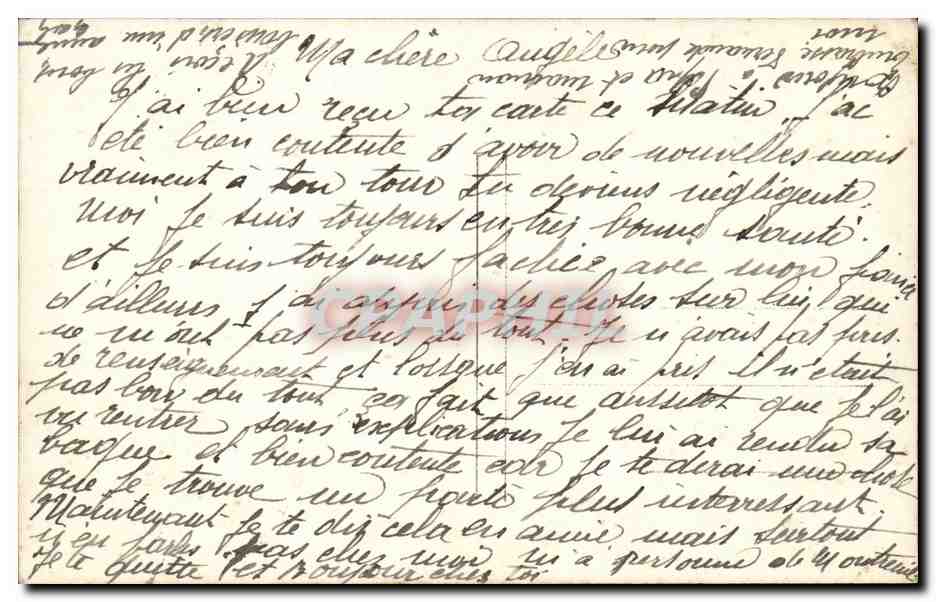 Ma chère Angèle
J'ai bien reçu ta carte ce matin j'ai
été bien contente d'avoir de nouvelles mais
vraiment à ton tour tu deviens négligente.
Moi je suis toujours en très bonne santé.
et je suis toujours fachée avec mon fiancé
d'ailleurs j'ai appris des choses sur lui qui
ne m'ont pas plus du tout. Je n'avais pas pris
de renseignement et lorsque j'en ai pris il n'était
pas bon du tout ça fait que aussitôt que je l'ai
vu rentrer sans explications je lui ai rendu sa
bague et bien contente car je te dirai une chose
que je trouve un parti plus interressant.
Maintenant je te dis cela en amie mais surtout
n'en parles pas chez moi ni à personne de Montreuil
Je te quitte et toujours chez toi
CPAPHIL